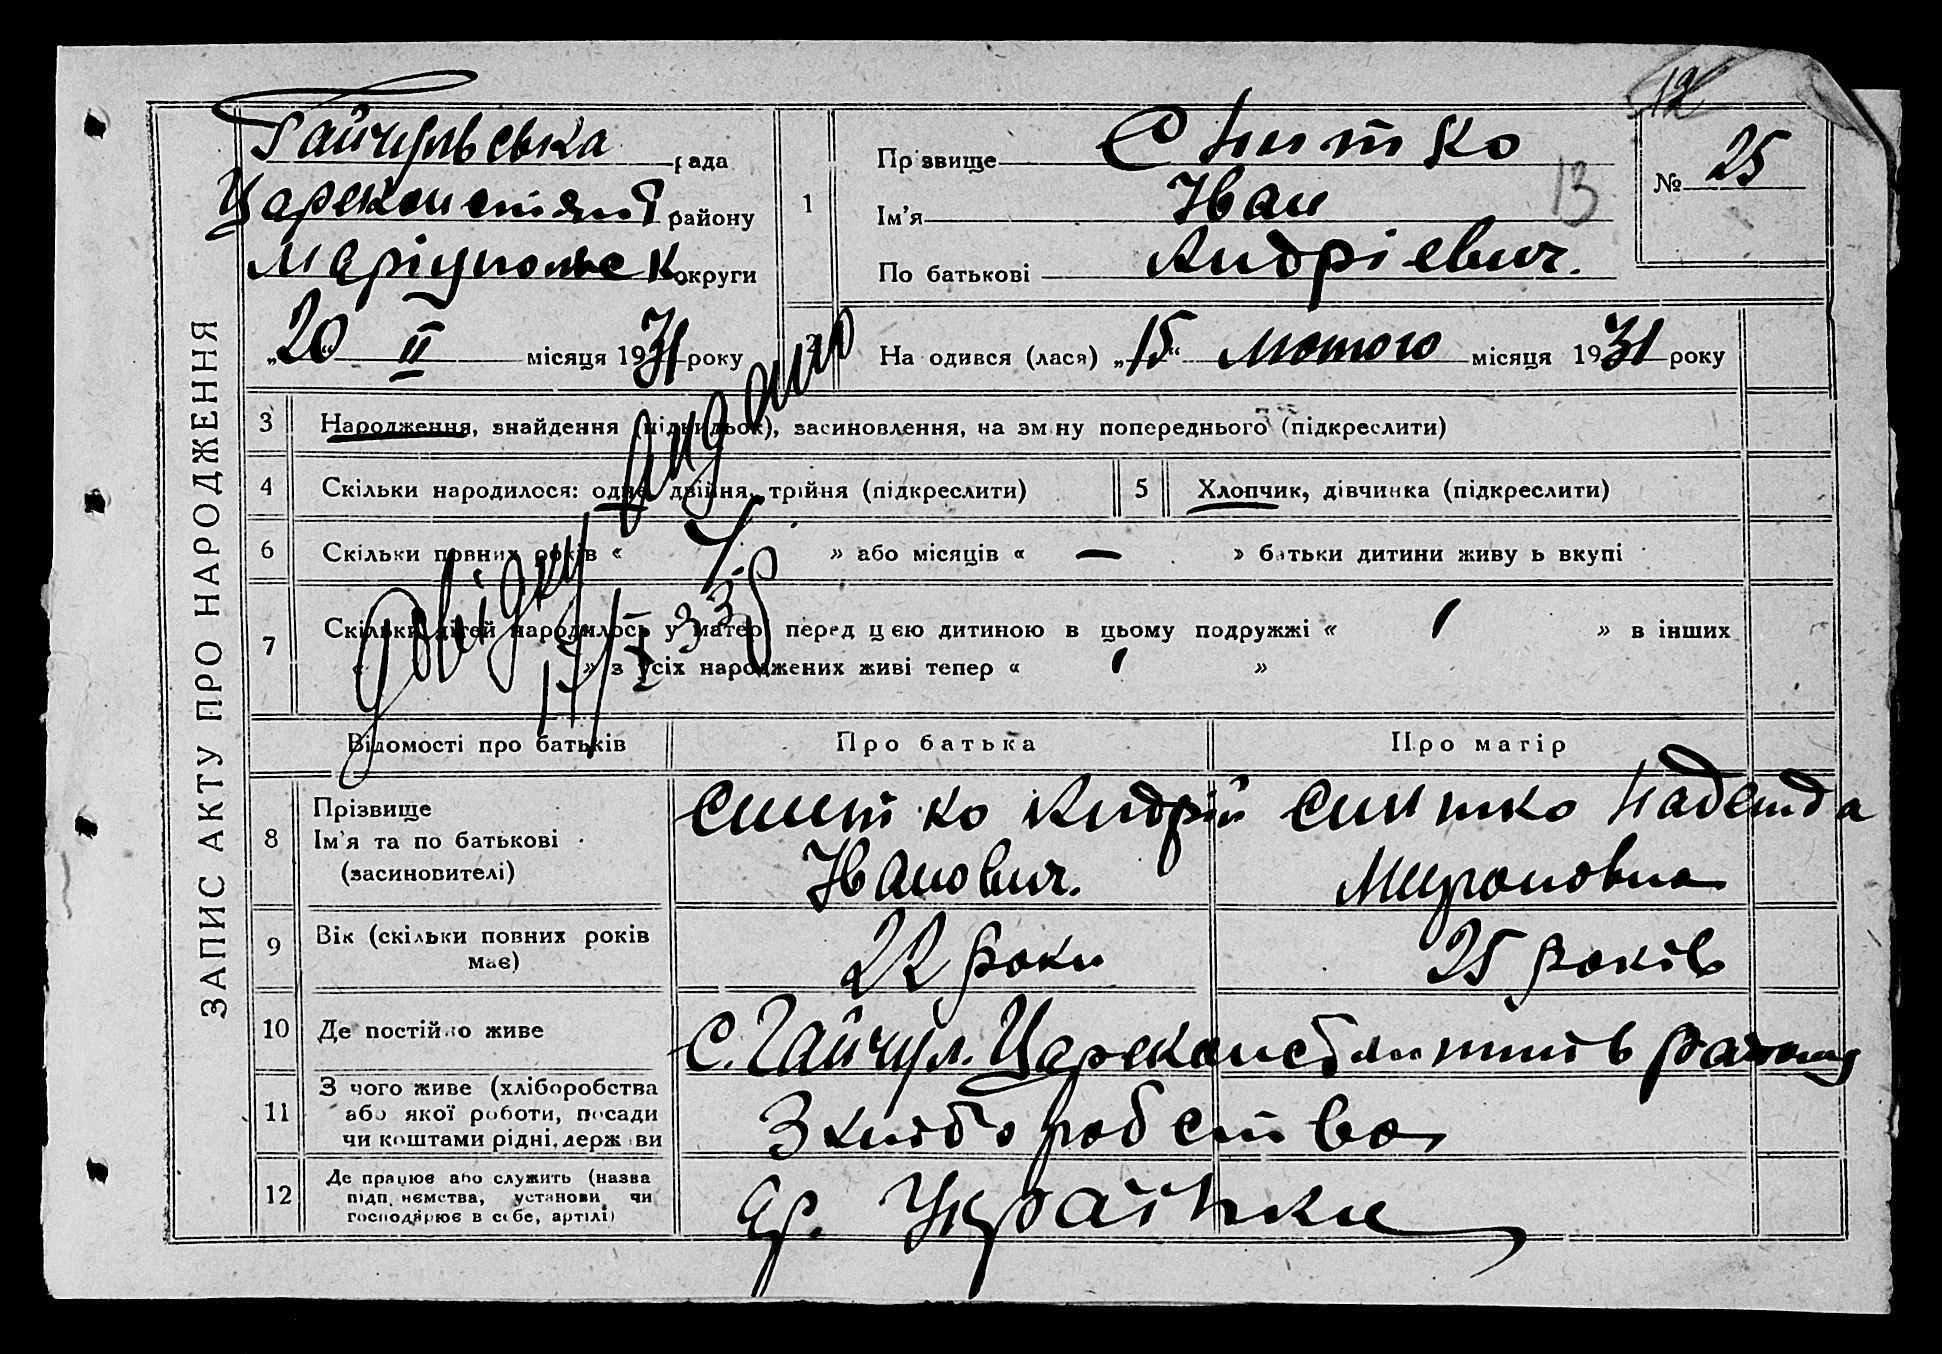 12
ЗАПИС АКТУ ПРО НАРОДЖЕННЯ
Гайчульська рада
району
Маріупольськ округи
„20“ II місяця 1931 року
1
Прізвище Снитко
Ім'я Іван
По батькові Андріевич.
13
№ 25
2
На одився (лася) „15“ Лютого місяця 1931 року
3 Народження, знайдення (підкидьок), засиновлення, на зміну попереднього (підкреслити)
4 Скільки народилося: одне, двійня, трійня (підкреслити)
5 Хлопчик, дівчинка (підкреслити)
6 Скільки повних років « » або місяців « — » батьки дитини живу ь вкупі
7 Скільки дітей народилось у матері перед цією дитиною в цьому подружжі « 1 » в інших
« » з усіх народжених живі тепер « 1 »
Довідку видано
Відомості про батьків Про батька Про матір
8 Прізвище
Ім'я та по батькові
(засиновителі)
Снитко Андрій
Іванович.
Снитко Надежда
Мироновна
9 Вік (скільки повних років має)
22 роки
25 років
10 Де постійно живе
с. Гайчул. району
11 З чого живе (хліборобства
або якої роботи, посади
чи коштами рідні, держ ви
З хліборобства
12 Де працює або служить (назва
підп иємства, установи чи
господарює в себе, артілі)